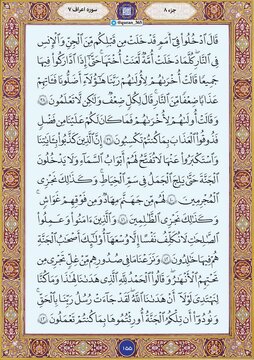 جزء ۸
@quran_365
سوره اعراف ۷
قَالَ ٱدْخُلُوا۟ فِىٓ أُمَمٍ قَدْ خَلَتْ مِن قَبْلِكُم مِّنَ ٱلْجِنِّ وَٱلْإِنسِ
فِى ٱلنَّارِ كُلَّمَا دَخَلَتْ أُمَّةٌ لَّعَنَتْ أُخْتَهَا حَتَّىٰٓ إِذَا ٱدَّارَكُوا۟ فِيهَا
جَمِيعًا قَالَتْ أُخْرَىٰهُمْ لِأُولَىٰهُمْ رَبَّنَا هَـٰٓؤُلَآءِ أَضَلُّونَا فَـَٔاتِهِمْ
عَذَابًا ضِعْفًا مِّنَ ٱلنَّارِ قَالَ لِكُلٍّ ضِعْفٌ وَلَـٰكِن لَّا تَعْلَمُونَ ۳۸
وَقَالَتْ أُولَىٰهُمْ لِأُخْرَىٰهُمْ فَمَا كَانَ لَكُمْ عَلَيْنَا مِن فَضْلٍ
فَذُوقُوا۟ ٱلْعَذَابَ بِمَا كُنتُمْ تَكْسِبُونَ ۳۹ إِنَّ ٱلَّذِينَ كَذَّبُوا۟ بِـَٔايَـٰتِنَا
وَٱسْتَكْبَرُوا۟ عَنْهَا لَا تُفَتَّحُ لَهُمْ أَبْوَٰبُ ٱلسَّمَآءِ وَلَا يَدْخُلُونَ
ٱلْجَنَّةَ حَتَّىٰ يَلِجَ ٱلْجَمَلُ فِى سَمِّ ٱلْخِيَاطِ وَكَذَٰلِكَ نَجْزِى
ٱلْمُجْرِمِينَ ۴۰ لَهُم مِّن جَهَنَّمَ مِهَادٌ وَمِن فَوْقِهِمْ غَوَاشٍ
وَكَذَٰلِكَ نَجْزِى ٱلظَّـٰلِمِينَ ۴۱ وَٱلَّذِينَ ءَامَنُوا۟ وَعَمِلُوا۟
ٱلصَّـٰلِحَـٰتِ لَا نُكَلِّفُ نَفْسًا إِلَّا وُسْعَهَآ أُو۟لَـٰٓئِكَ أَصْحَـٰبُ ٱلْجَنَّةِ
هُمْ فِيهَا خَـٰلِدُونَ ۴۲ وَنَزَعْنَا مَا فِى صُدُورِهِم مِّنْ غِلٍّ تَجْرِى مِن
تَحْتِهِمُ ٱلْأَنْهَـٰرُ وَقَالُوا۟ ٱلْحَمْدُ لِلَّهِ ٱلَّذِى هَدَىٰنَا لِهَـٰذَا وَمَا كُنَّا
لِنَهْتَدِىَ لَوْلَآ أَنْ هَدَىٰنَا ٱللَّهُ لَقَدْ جَآءَتْ رُسُلُ رَبِّنَا بِٱلْحَقِّ
وَنُودُوٓا۟ أَن تِلْكُمُ ٱلْجَنَّةُ أُورِثْتُمُوهَا بِمَا كُنتُمْ تَعْمَلُونَ ۴۳
۱۵۵